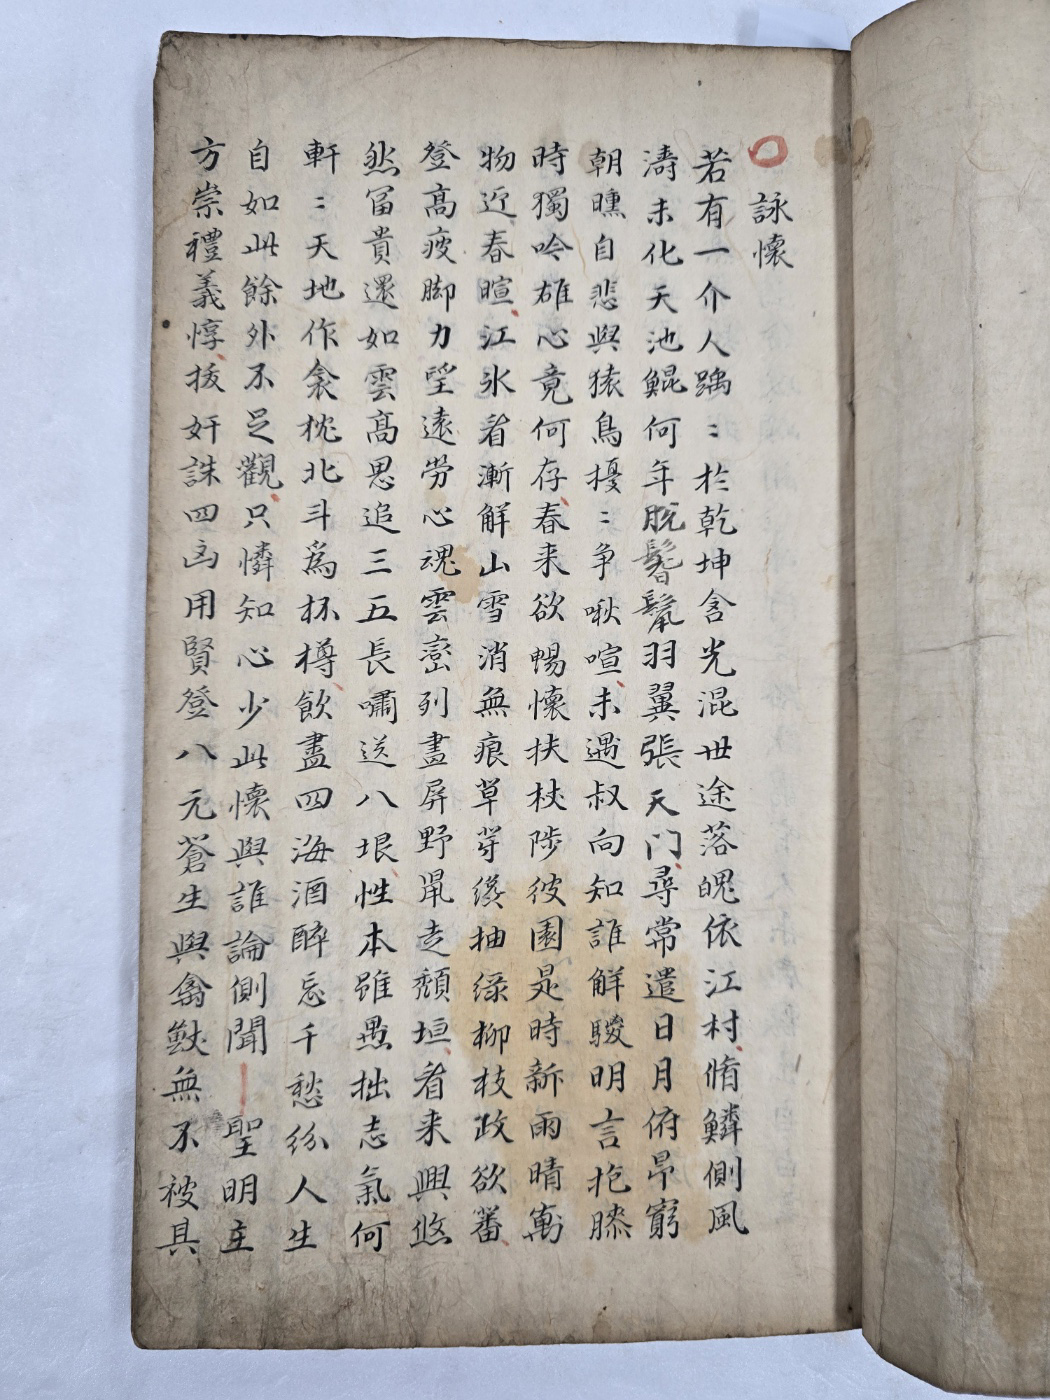 詠懷
若有一介人踽〻於乾坤含光混世途落魄依江村脩鱗側風
濤未化天池鯤何年脫鬐鬣羽翼張天门尋常遣日月俯昂窮
朝曛自悲與猿鳥擾〻争啾喧未遇叔向知誰解鬷明言抱膝
時獨吟雄心竟何存春来欲暢懷扶杖陟彼園是時新雨晴萬
物近春暄江氷看漸解山雪消無痕草芽纔抽緑柳枝政欲蕃
登高疲脚力望遠勞心魂雲巒列畵屏野鼠走頽垣看来興悠
然冨貴還如雲高思追三五長嘯送八垠性本雖愚拙志氣何
軒〻天地作衾枕北斗爲杯樽飲盡四海酒醉忘千愁紛人生
自如此餘外不足觀只憐知心少此懷與誰論側聞 聖明主
方崇禮義惇拔奸誅四凶用賢登八元蒼生與禽獸無不被具